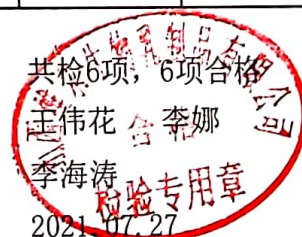 共检6项，6项合格
王伟花 李娜
李海涛
2021.07.27
合格
检验专用章